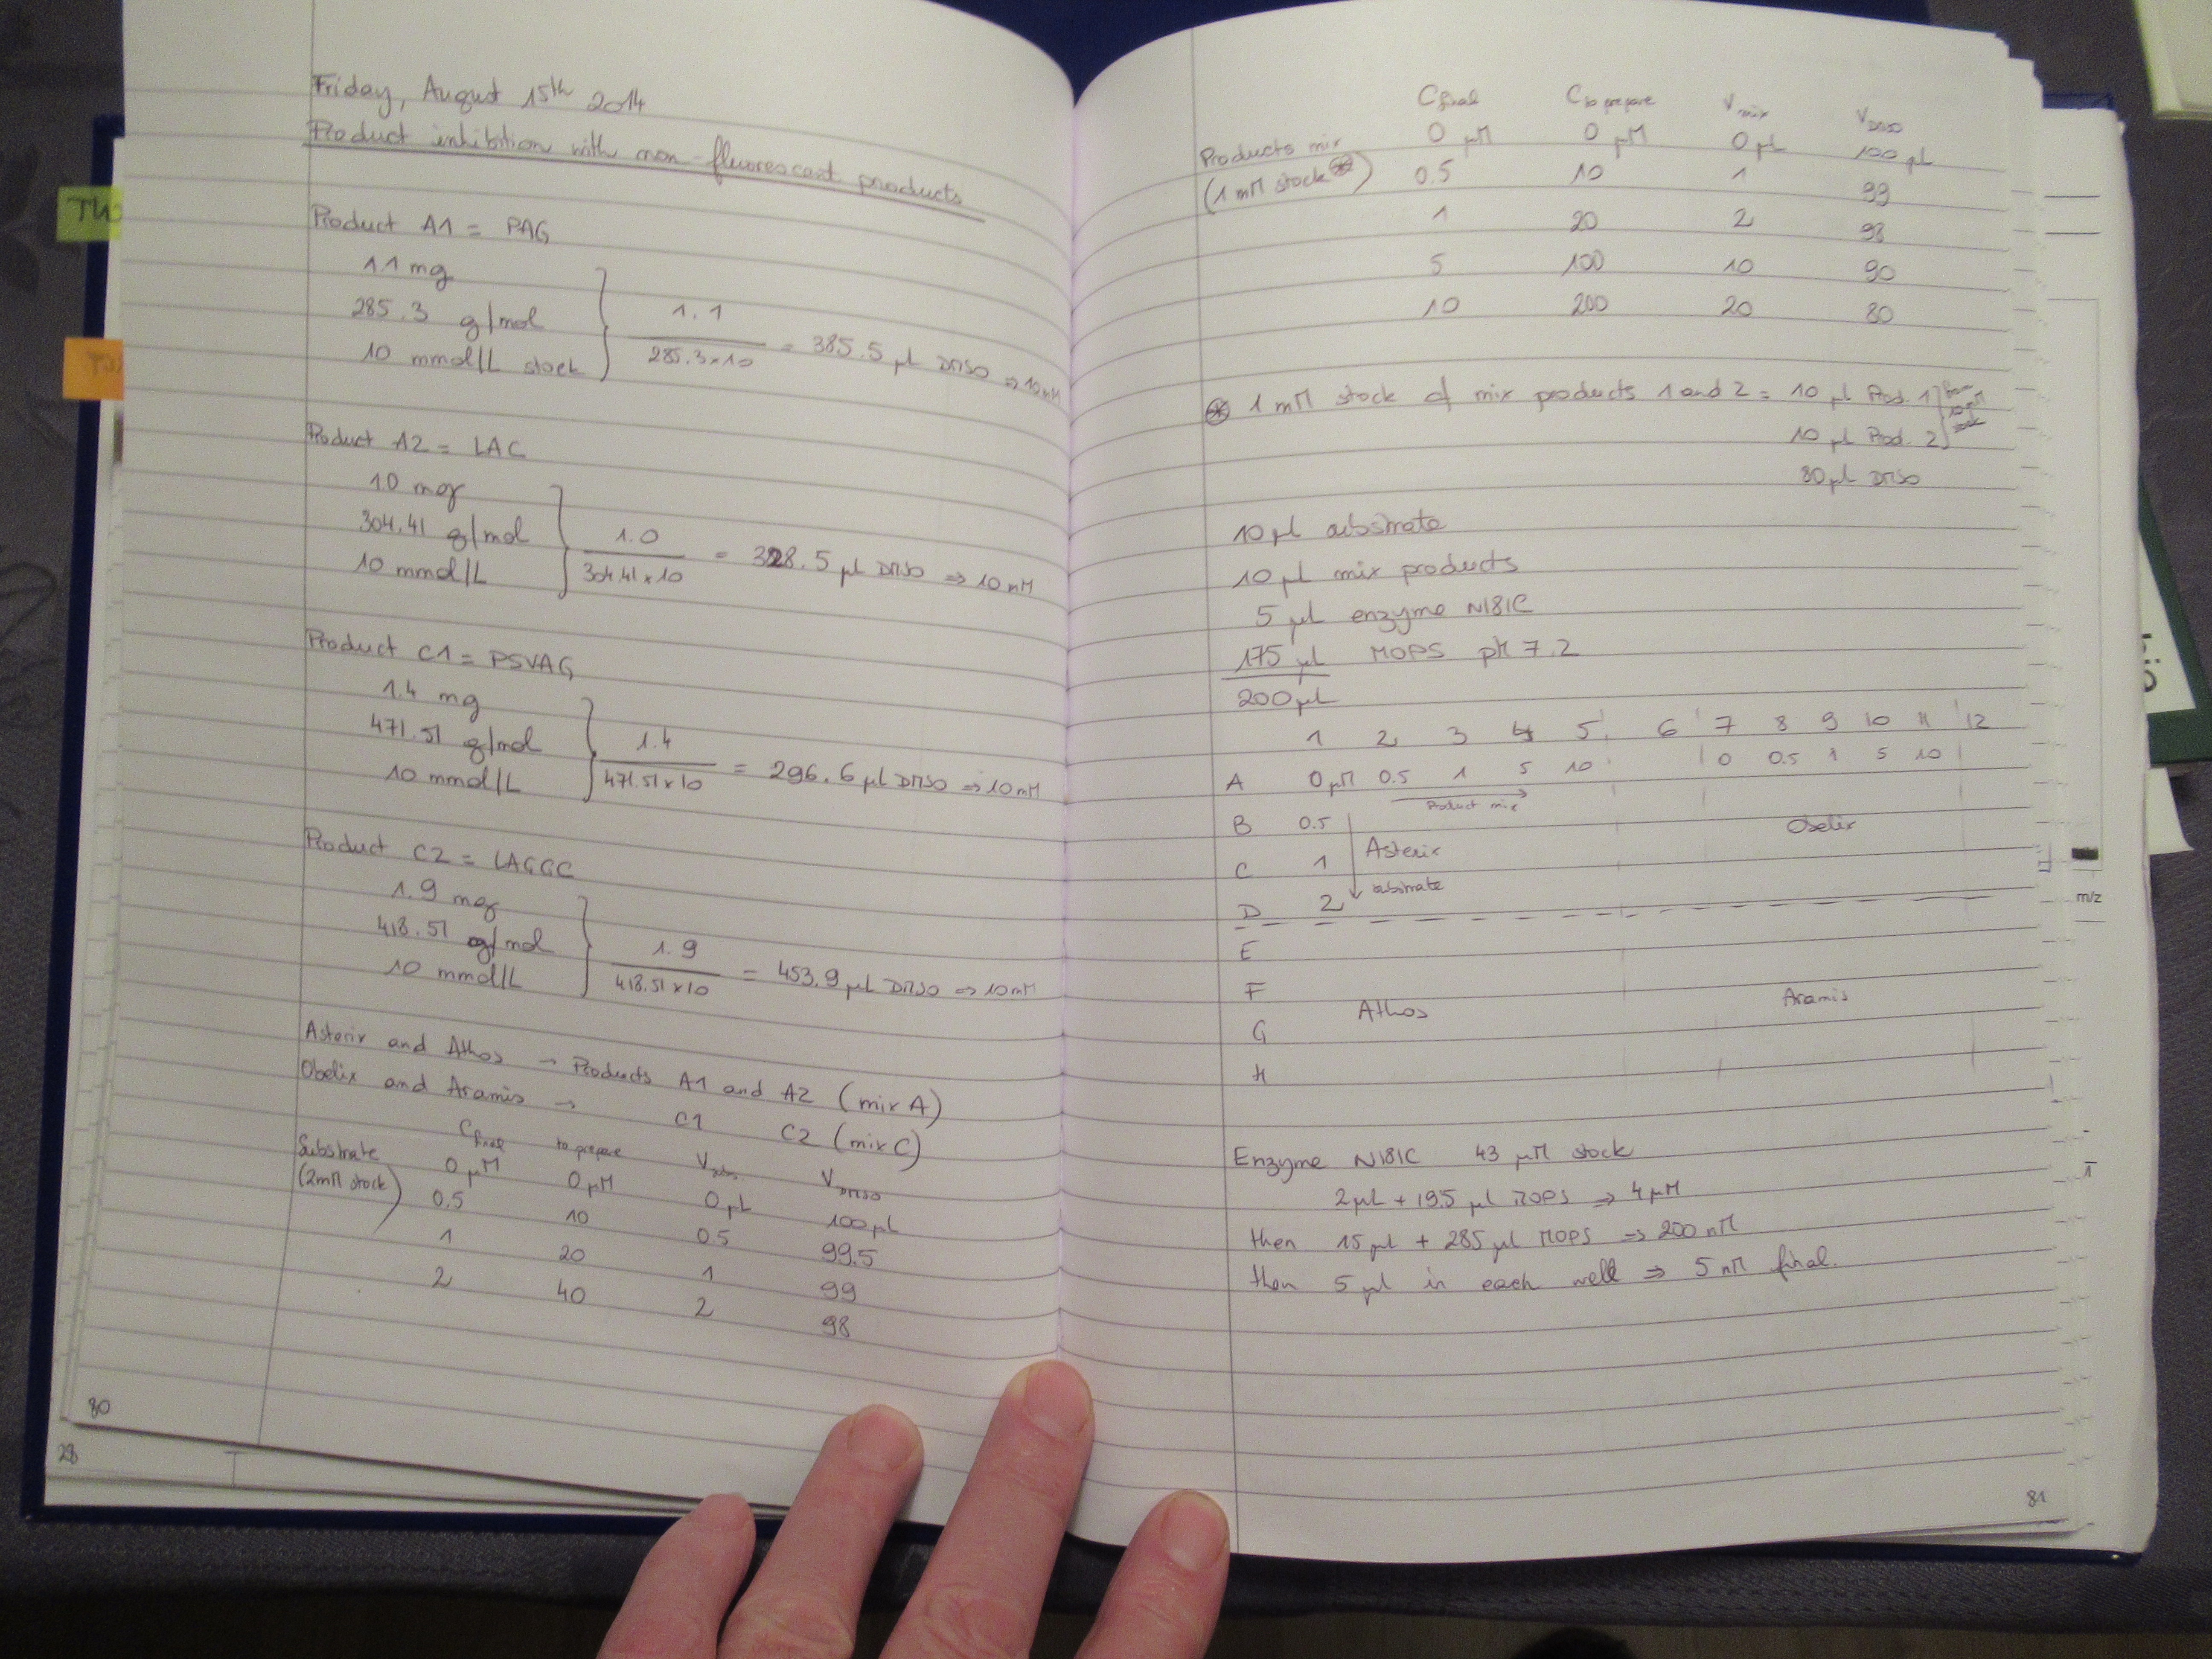 Friday, August 15th 2014
Product inhibition with non-fluorescent products
Product A1 = PAG
1.1 mg
285.3 g/mol
10 mmol/L stock
1.1
285.3x10
= 385.5 µL DMSO ⇒ 10 mM
Product A2 = LAC
10 mg
304.41 g/mol
10 mmol/L
1.0
304.41x10
= 328.5 µL DMSO ⇒ 10 mM
Product C1 = PSVAG
1.4 mg
471.51 g/mol
10 mmol/L
1.4
471.51x10
= 296.6 µL DMSO ⇒ 10 mM
Product C2 = LAGGC
1.9 mg
418.51 g/mol
10 mmol/L
1.9
418.51x10
= 453.9 µL DMSO ⇒ 10 mM
Asterix and Athos → Products A1 and A2 (mix A)
Obelix and Aramis → C1 C2 (mix C)
C final to prepare V subs. V DMSO
Substrate 0 µM 0 µM 0 µL 100 µL
(2mM stock) 0.5 10 0.5 99.5
1 20 1 99
2 40 2 98
80
28
C final C to prepare V mix V DMSO
Products mix 0 µM 0 µM 0 µL 100 µL
(1 mM stock ⊛) 0.5 10 1 99
1 20 2 98
5 100 10 90
10 200 20 80
⊛ 1 mM stock of mix products 1 and 2 = 10 µL Prod. 1 from 10 mM stock
10 µL Prod. 2
80 µL DMSO
10 µL substrate
10 µL mix products
5 µL enzyme N181C
175 µL MOPS pH 7.2
200 µL
1 2 3 4 5 6 7 8 9 10 11 12
A 0 µM 0.5 1 5 10 0 0.5 1 5 10
Product mix
B 0.5 Obelix
C 1 Asterix
D 2 substrate
E
F Athos Aramis
G
H
Enzyme N181C 43 µM stock
2 µL + 19.5 µL MOPS ⇒ 4 µM
then 15 µL + 285 µL MOPS ⇒ 200 nM
then 5 µL in each well ⇒ 5 nM final.
81
m/z